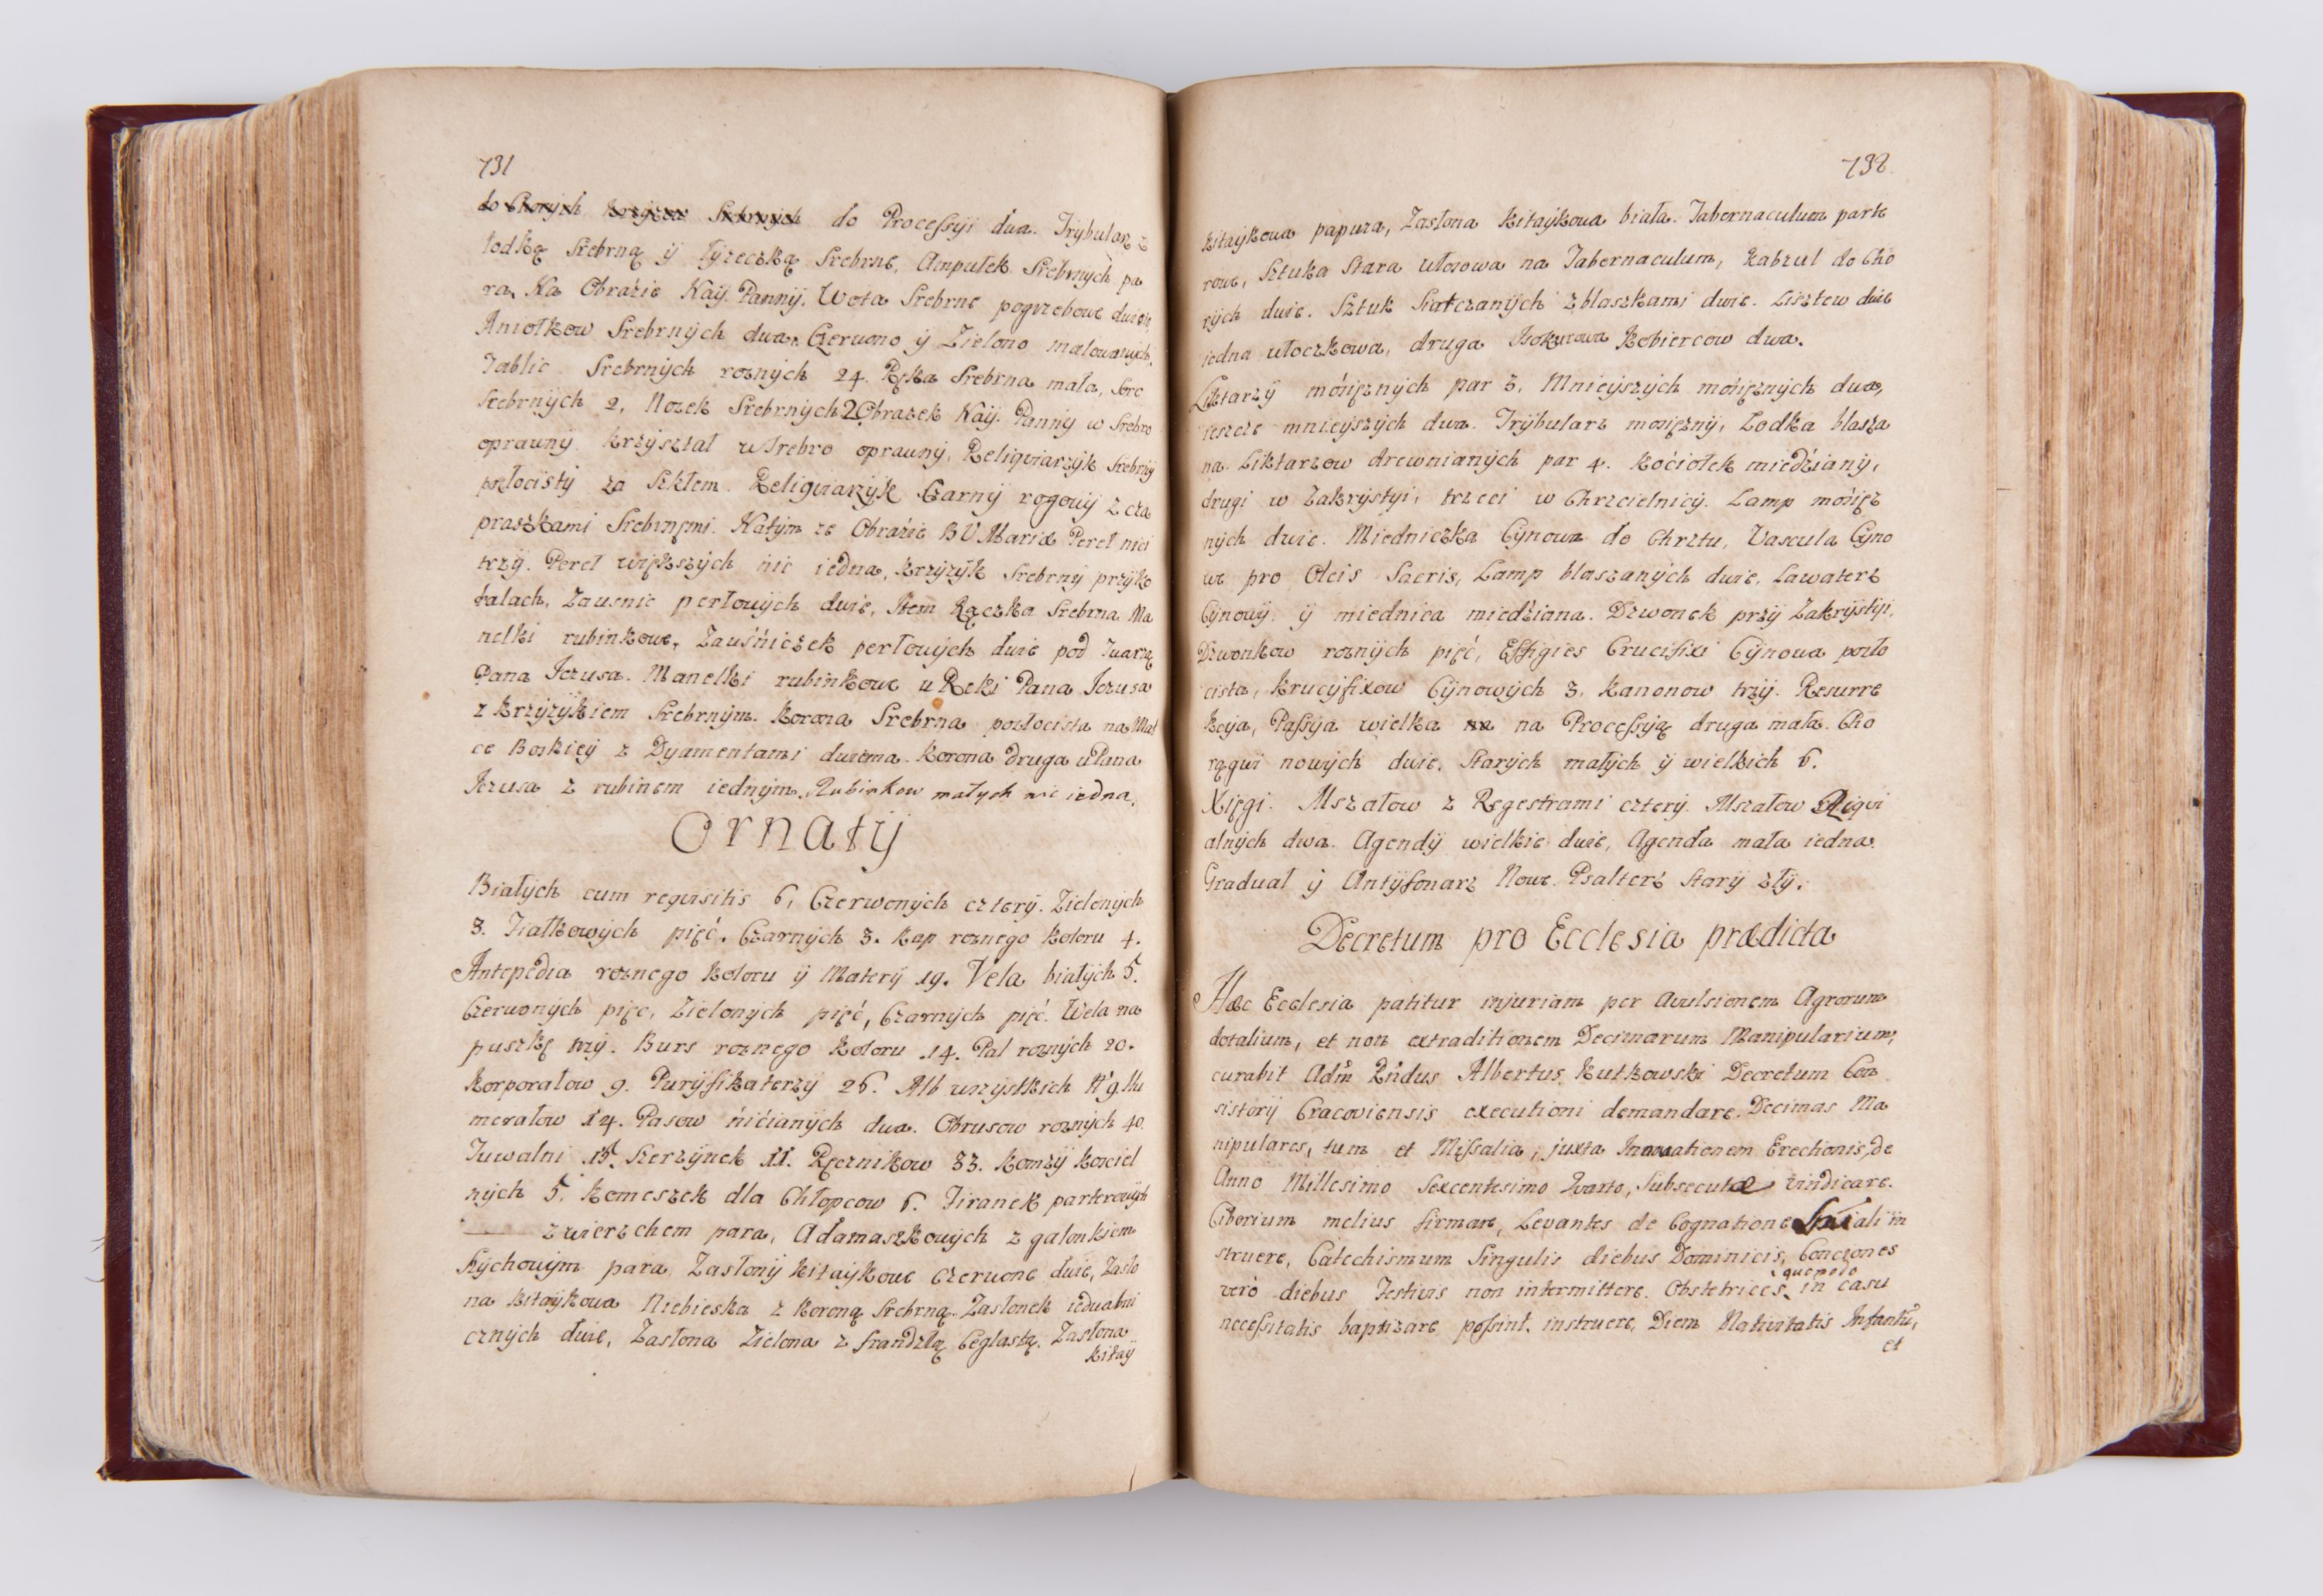 731
do Chorych krzyzow Srebrnych do Processyi dwa. Trybularz z
łodką Srebrną ÿ łyżeczką Srebrne, Ampułek Srebrnÿch pa
ra, Na Obraźie Naÿ. Pannÿ. Wota Srebrne pogrzebowe dwie
Aniołkow Srebrnÿch dwa, Czerwono ÿ Zielono malowanÿch,
Tablic Srebrnÿch roznÿch 24. Ręka Srebrna mała, Serc
Srebrnÿch 2, Nozek Srebrnÿch 2 Obrazek Naÿ. Pannÿ w Srebro
oprawnÿ. krzÿsztal w Srebro oprawnÿ, Religwiarzÿk Srebrnÿ
pozłocistÿ za Szkłem. Religwiarzÿk Czarnÿ rogowÿ z cza
praszkami Srebrnęmi. Natÿm ze Obraźie B V Mariæ Pereł nici
trzÿ. Pereł większÿch nic iedna, krzÿzÿk Srebrnÿ przÿko
ralach, Zausnic perłowÿch dwie, Item Rączka Srebrna Ma
nelki rubinkowe, Zauśniczek perłowÿch dwie pod Twarzą
Pana Jezusa. Manelki rubinkowe u Ręki Pana Jezusa
z krzÿzÿkiem Srebrnÿm. korona Srebrna pozłocista na Mat
ce Boskieÿ z Dyamentami dwiema. korona druga u Pana
Jezusa z rubinem iednÿm. Rubinkow małych nic iedna.
Ornatÿ
Białÿch cum requisitis 6, Czerwonÿch czterÿ. Zielonÿch
3. Fiałkowÿch pięć. Czarnÿch 3. kap roznego koloru 4.
Antepedia roznego koloru ÿ Materÿ 19. Vela białÿch 5.
Czerwonÿch pięc, Zielonÿch pięć, Czarnÿch pięć. Wela na
puszkę trzÿ. Burs roznego koloru 14. Pal roznÿch 20.
korporałow 9. Purÿfikaterzÿ 26. Alb wszÿstkich N 9. Hu
merałow 14. Pasow nićianÿch dwa. Obrusow roznÿch 40.
Tuwalni 15. Szerzÿnek 11. Ręcznikow 33. komżÿ kosciel
nÿch 5. komeszek dla Chłopcow 6. Firanek parterowÿch
z wierzchem para, Adamaszkowÿch z galonkiem
Sÿchowÿm para. Zasłonÿ kitaÿkowe czerwone dwie, Zasło
na kitaÿkowa Niebieska z koroną Srebrną. Zaslonek iedwabni
cznÿch dwie, Zasłona Zielona z frandzlą Ceglastą. Zasłona
kitaÿ
732
kitaÿkowa papuza, Zasłona kitaÿkowa biała. Tabernaculum parte
rowe, Sztuka Stara włosowa na Tabernaculum, kabzul do Cho
rÿch dwie. Sztuk Siatczanÿch z blaszkami dwie. Lisztew dwie
iedna włoczkowa, druga kobiercow dwa.
Liktarzÿ mośięznÿch par 3. Mnieÿszÿch mośięznÿch dwa,
ieszcze mnieÿszÿch dwa. Trÿbularz mosięznÿ, Łodka blasza
na. Liktarzow drewnianÿch par 4. kociołek miedźianÿ,
drugi w Zakrÿstÿi, trzeci w Chrzcielnicÿ. Lamp mośięz
nÿch dwie. Miedniczka Cÿnowa do Chrztu, Vascula Cÿno
we pro Oleis Sacris, Lamp blaszanÿch dwie, Lawaterz
Cÿnowÿ ÿ miednica miedźiana. Dzwonek przÿ Zakrÿstÿi,
Dzwonkow roznÿch pięć, Effigies Crucifixi Cÿnowa pozło
cista, krucÿfixow Cÿnowÿch 3. kanonow trzÿ. Resurre
kcÿa, Passÿa wielka na na Processÿą druga mała. Cho
rągwi nowÿch dwie, Starÿch małÿch ÿ wielkich 6.
Xięgi. Mszałow z Regestrami czterÿ. Mszałow Reqwi
alnÿch dwa. Agendÿ wielkie dwie, Agenda mała iedna.
Graduał ÿ Antÿfonarz Nowe. Psałterz Starÿ złÿ.
Decretum pro Ecclesia prædicta
Hæc Ecclesia patitur injuriam per Avulsionem Agrorum
dotalium, et non extraditionem Decimarum Manipularium,
curabit Adm̃ Rñdus Albertus Kutkowski Decretum Con
sistorÿ Cracoviensis executioni demandare. Decimas Ma
nipulares, tum et Missalia, juxta Innovationem Erectionis, de
Anno Millesimo Sexcentesimo Quarto, Subsecutæ vindicare.
Ciborium melius firmare, Levantes de Cognatione Spiali in
struere, Catechismum Singulis diebus Dominicis, Conciones
verò diebus Festivis non intermittere. Obstetrices, quomodo in casu
necessitatis baptizare possint, instruere, Diem Nativitatis Infantũ,
et